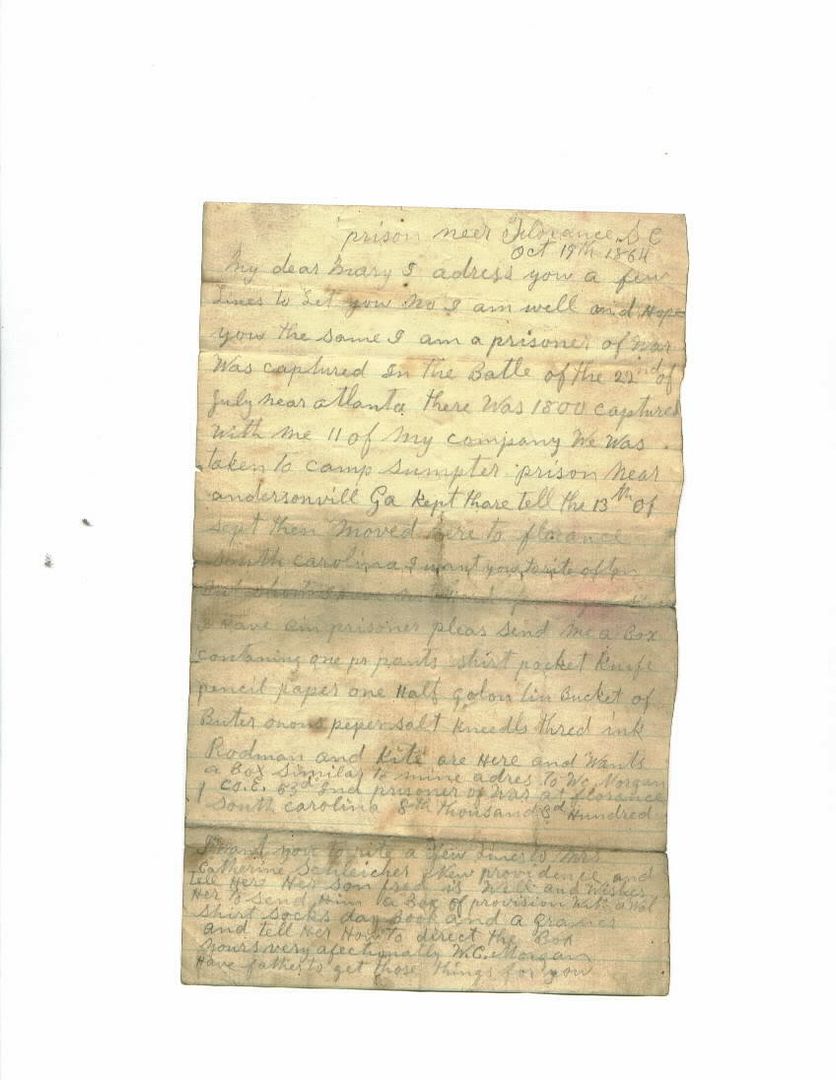 prison neer Florance S C
Oct 19th 1864
My dear Mary I adress you a few
Lines to Let you No I am well and Hope
you the same I am a prisoner of War
Was captured In the Battle of the 22nd of
July near atlanta there Was 1800 captured
With me 11 of my company We Was
taken to camp sumpter prison Near
andersonvill Ga Kept thare tell the 13th of
Sept then moved here to florance
South carolina I want you to rite often
But
I Have am prisoner pleas send me a Box
containing one pr pants shirt pocket Knife
pencil paper one Half golon tin Bucket of
Buter onons peper salt kneedls thred ink
Rodman and Kite are Here and Wants
a Box similar to mine adres to Wc Morgan
Co. E. 53d Ind prisoner of War at florance
South carolina 8th thousand 3d Hundred
I want you to rite a few Lines to Mrs
Catherine Schleicher New providence and
tell Here Her son fred is Well and Wishes
Her to send Him a Box of provision
shirt socks day Book and a
and tell Her How to direct the Box
Yours very afectionally W.C. Morgan
Have father to get those things for you